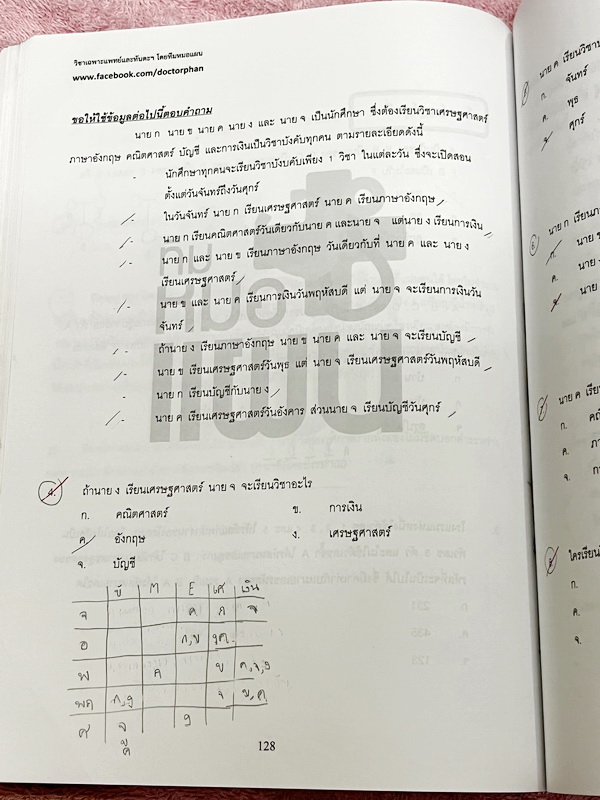 วิชาเฉพาะแพทย์และทันตะฯ โดยทีมหมอแผน
www.facebook.com/doctorphan
ขอให้ใช้ข้อมูลต่อไปนี้ตอบคำถาม
นาย ก นาย ข นาย ค นาย ง และ นาย จ เป็นนักศึกษา ซึ่งต้องเรียนวิชาเศรษฐศาสตร์
ภาษาอังกฤษ คณิตศาสตร์ บัญชี และการเงินเป็นวิชาบังคับทุกคน ตามรายละเอียดดังนี้
- นักศึกษาทุกคนจะเรียนวิชาบังคับเพียง 1 วิชา ในแต่ละวัน ซึ่งจะเปิดสอน
ตั้งแต่วันจันทร์ถึงวันศุกร์
- ในวันจันทร์ นาย ก เรียนเศรษฐศาสตร์ นาย ค เรียนภาษาอังกฤษ
- นาย ก เรียนคณิตศาสตร์วันเดียวกับนาย ค และนาย จ แต่นาย ง เรียนการเงิน
- นาย ก และ นาย ข เรียนภาษาอังกฤษ วันเดียวกับที่ นาย ค และ นาย ง
เรียนเศรษฐศาสตร์
- นาย ข และ นาย ค เรียนการเงินวันพฤหัสบดี แต่ นาย จ จะเรียนการเงินวัน
จันทร์
- ถ้านาย ง เรียนภาษาอังกฤษ นาย ข นาย ค และ นาย จ จะเรียนบัญชี
- นาย ข เรียนเศรษฐศาสตร์วันพุธ แต่ นาย จ เรียนเศรษฐศาสตร์วันพฤหัสบดี
- นาย ก เรียนบัญชีกับนาย ง
- นาย ค เรียนเศรษฐศาสตร์วันอังคาร ส่วนนาย จ เรียนบัญชีวันศุกร์
4. ถ้านาย ง เรียนเศรษฐศาสตร์ นาย จ จะเรียนวิชาอะไร
ก. คณิตศาสตร์ ข. การเงิน
ค. อังกฤษ ง. เศรษฐศาสตร์
จ. บัญชี
บั M E เศ เงิน
จ ค ก จ
อ ก,ข ง,ค
พ ข
พฤ ก,ง จ ข,ค
ศ จ ง
128
นาย ค เรียนวิชา
ก. จันทร์
ค. พุธ
จ. ศุกร์
6 นาย ก เรียน
ก. นาย ข
ค. นาย ง
จ. นาย
7 นาย ค เรียน
ก.
ค.
จ.
ใครเรียน
ก.
ค.
จ.